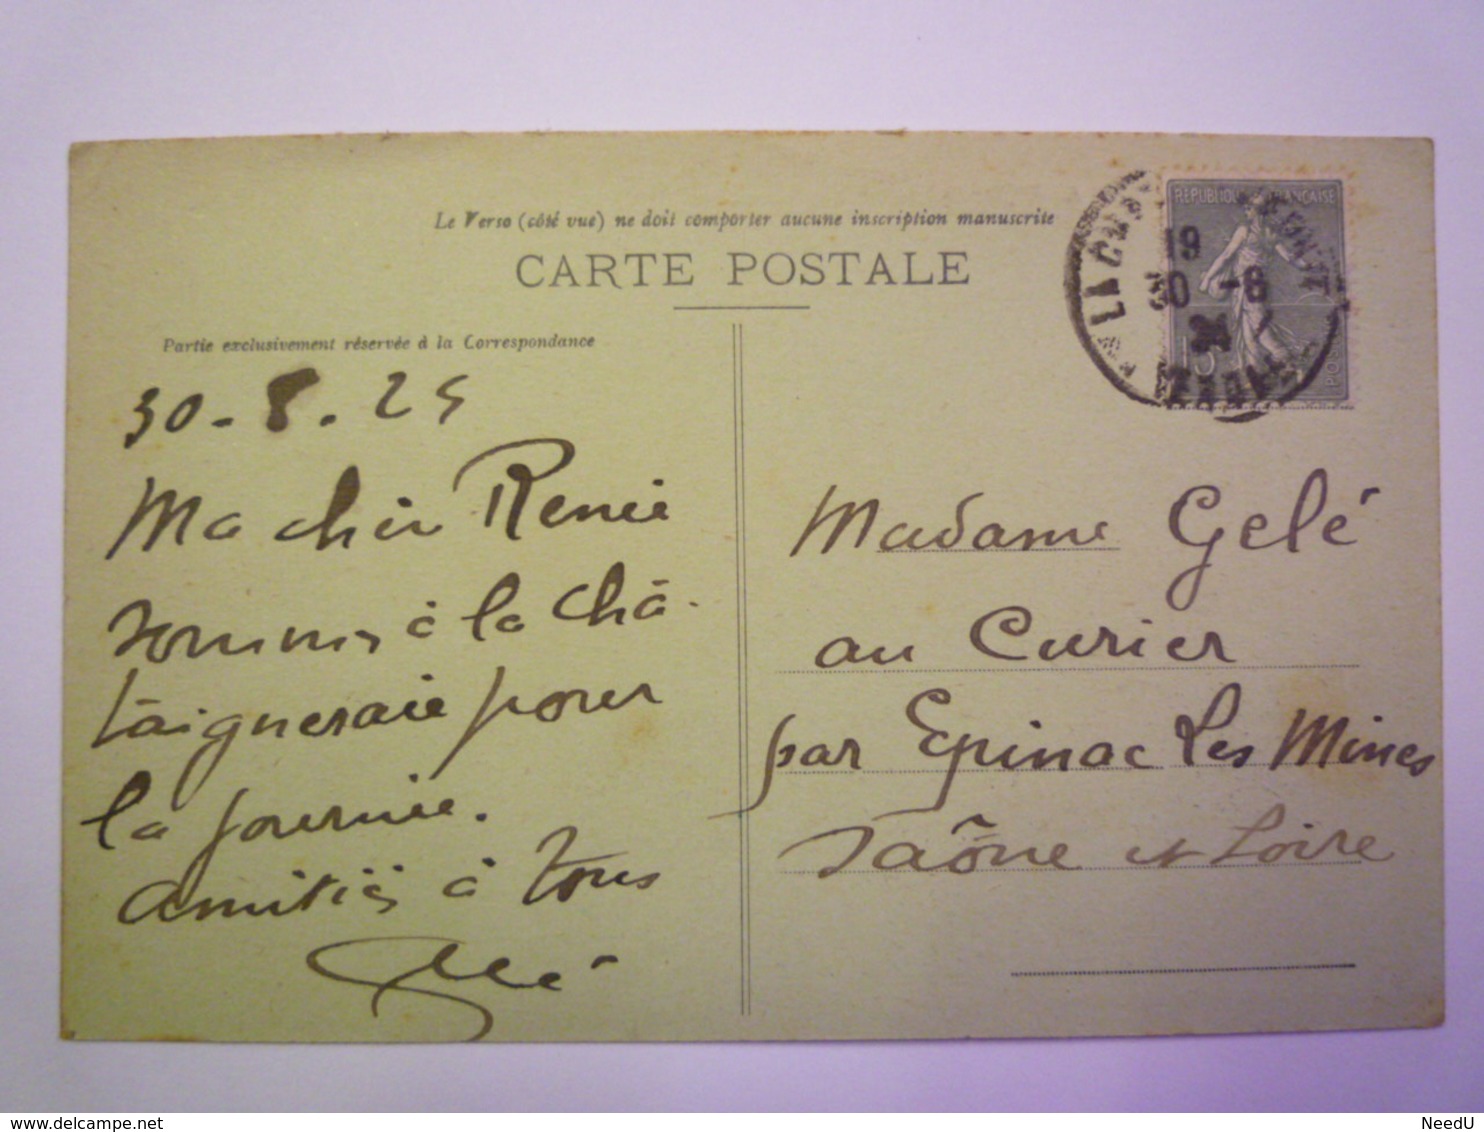 Le Verso (côté vue) ne doit comporter aucune inscription manuscrite
CARTE POSTALE
Partie exclusivement réservée à la Correspondance
30-8.25
Ma cher Renée
sommes à la Châ-
tâigneraie pour
la journée.
amitiés à tous
Gelé
Madame Gelé
au Curier
par Epinac Les Mines
Saône et Loire
REPUBLIQUE FRANÇAISE
19
30 -8
15
POSTES
NeedU
delcampe.net